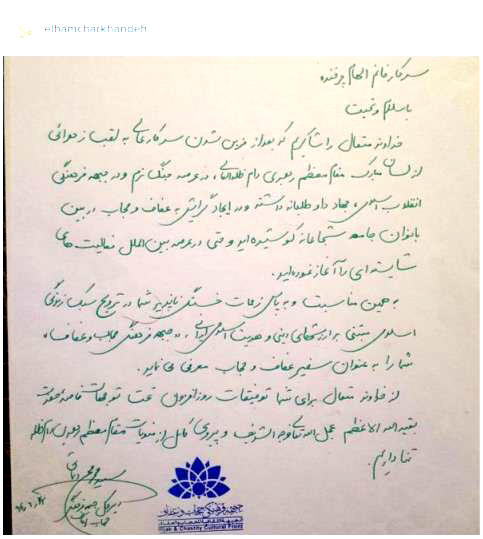 elhamcharkhandeh
سرکار خانم الهام چرخنده
باسلام و تحیت
خداوند متعال را شاکریم که بعد از مزین شدن سرکار عالی به لقب
از لسان مبارک مقام معظم رهبری دام ظله العالی، در عرصه جنگ نرم و در جبهه فرهنگی
انقلاب اسلامی، جهاد داوطلبانه داشته و در ایجاد گرایش به عفاف و حجاب در بین
بانوان جامعه شجاعانه کوشیده اید و حتی در عرصه بین الملل فعالیت های
شایسته ای را آغاز نموده اید.
به همین مناسبت و به پاس زحمات خستگی ناپذیر شما در ترویج سبک زندگی
اسلامی مبتنی بر ارزشهای دینی و هویت اسلامی ایرانی، جبهه فرهنگی حجاب و عفاف،
شما را به عنوان سفیر عفاف و حجاب معرفی می نماید.
از خداوند متعال برای شما توفیقات روزافزون تحت توجهات خاصه حضرت
بقیه الله الاعظم عجل الله تعالی فرجه الشریف و پیروی کامل از منویات مقام معظم رهبری
تمنا داریم.
سید محمد
دبیر کل جبهه فرهنگی
حجاب
جبهه فرهنگی حجاب و عفاف
Hijab & Chastity Cultural Front